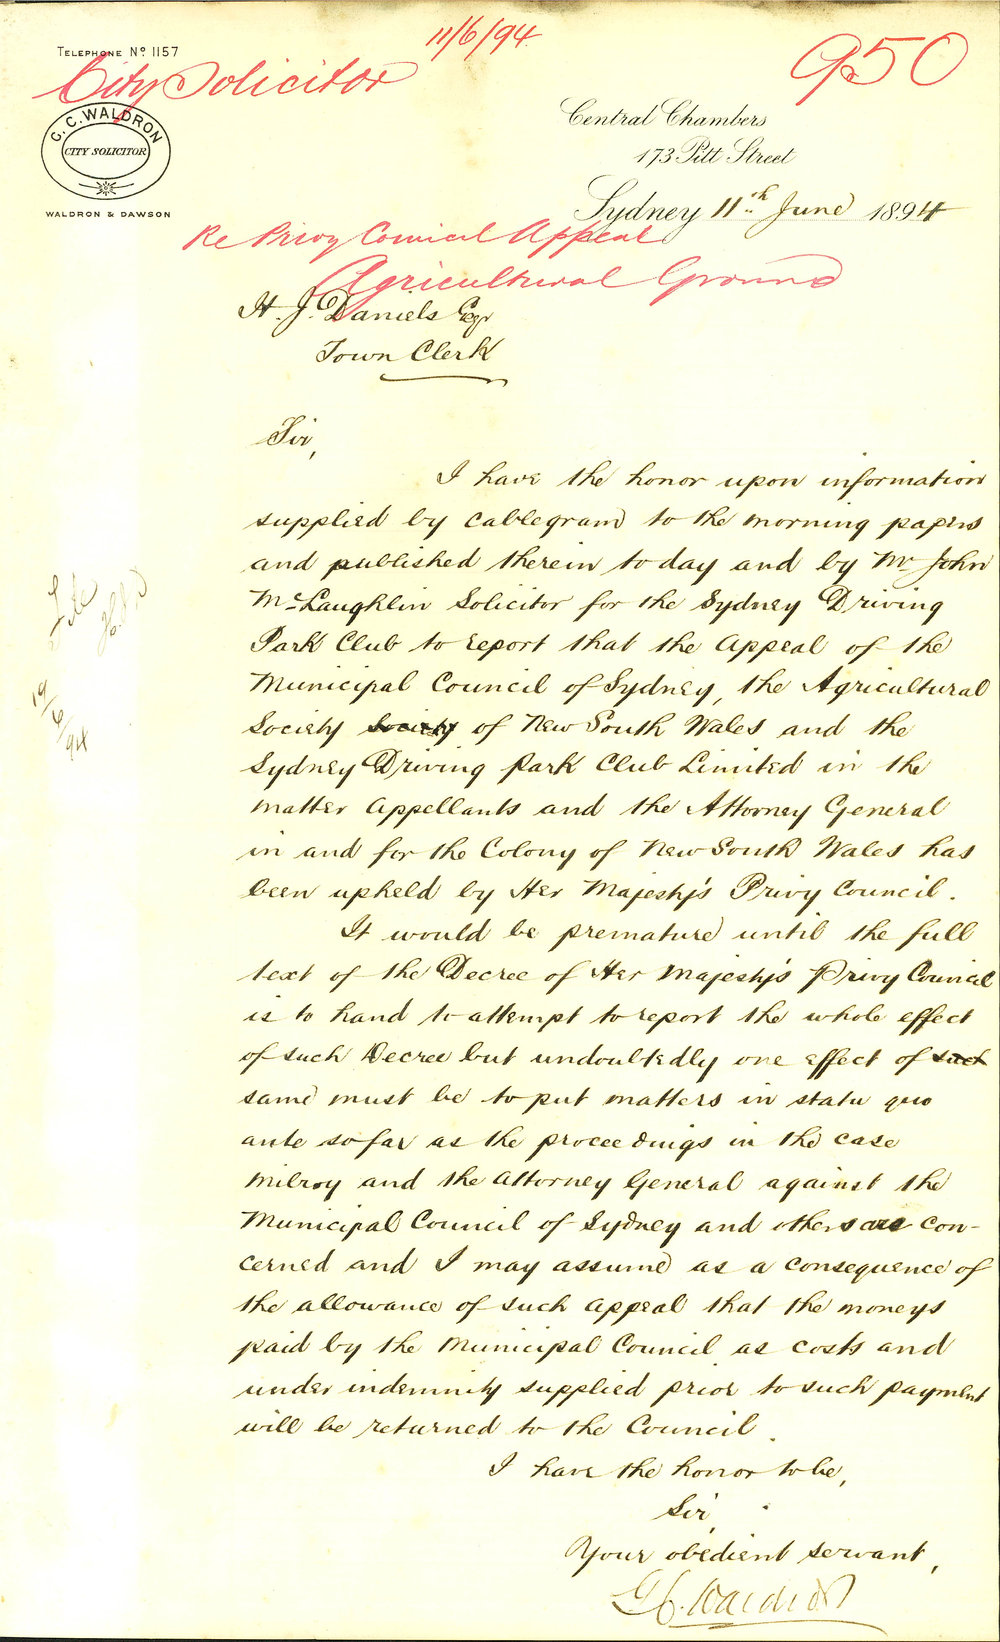 11/6/94
950
TELEPHONE No 1157
City Solicitor
G. C. WALDRON
CITY SOLICITOR
WALDRON & DAWSON
Central Chambers
173 Pitt Street
Sydney 11th June 1894
Re Privy Council Appeal
Agricultural Ground
H. J. Daniels Esqr
Town Clerk
Sir,
I have the honor upon information
supplied by cablegram to the morning papers
and published therein to day and by Mr John
McLaughlin Solicitor for the Sydney Driving
Park Club to report that the Appeal of the
Municipal Council of Sydney, the Agricultural
Society Society of New South Wales and the
Sydney Driving Park Club Limited in the
matter Appellants and the Attorney General
in and for the Colony of New South Wales has
been upheld by Her Majesty's Privy Council.
It would be premature until the full
text of the Decree of Her Majesty's Privy Council
is to hand to attempt to report the whole effect
of such Decree but undoubtedly one effect of such
same must be to put matters in statu quo
ante so far as the proceedings in the case
Milroy and the Attorney General against the
Municipal Council of Sydney and others are con-
cerned and I may assume as a consequence of
the allowance of such Appeal that the moneys
paid by the Municipal Council as costs and
under indemnity supplied prior to such payment
will be returned to the Council.
I have the honor to be,
Sir,
Your obedient servant,
G. C. Waldron
File
19/6/94